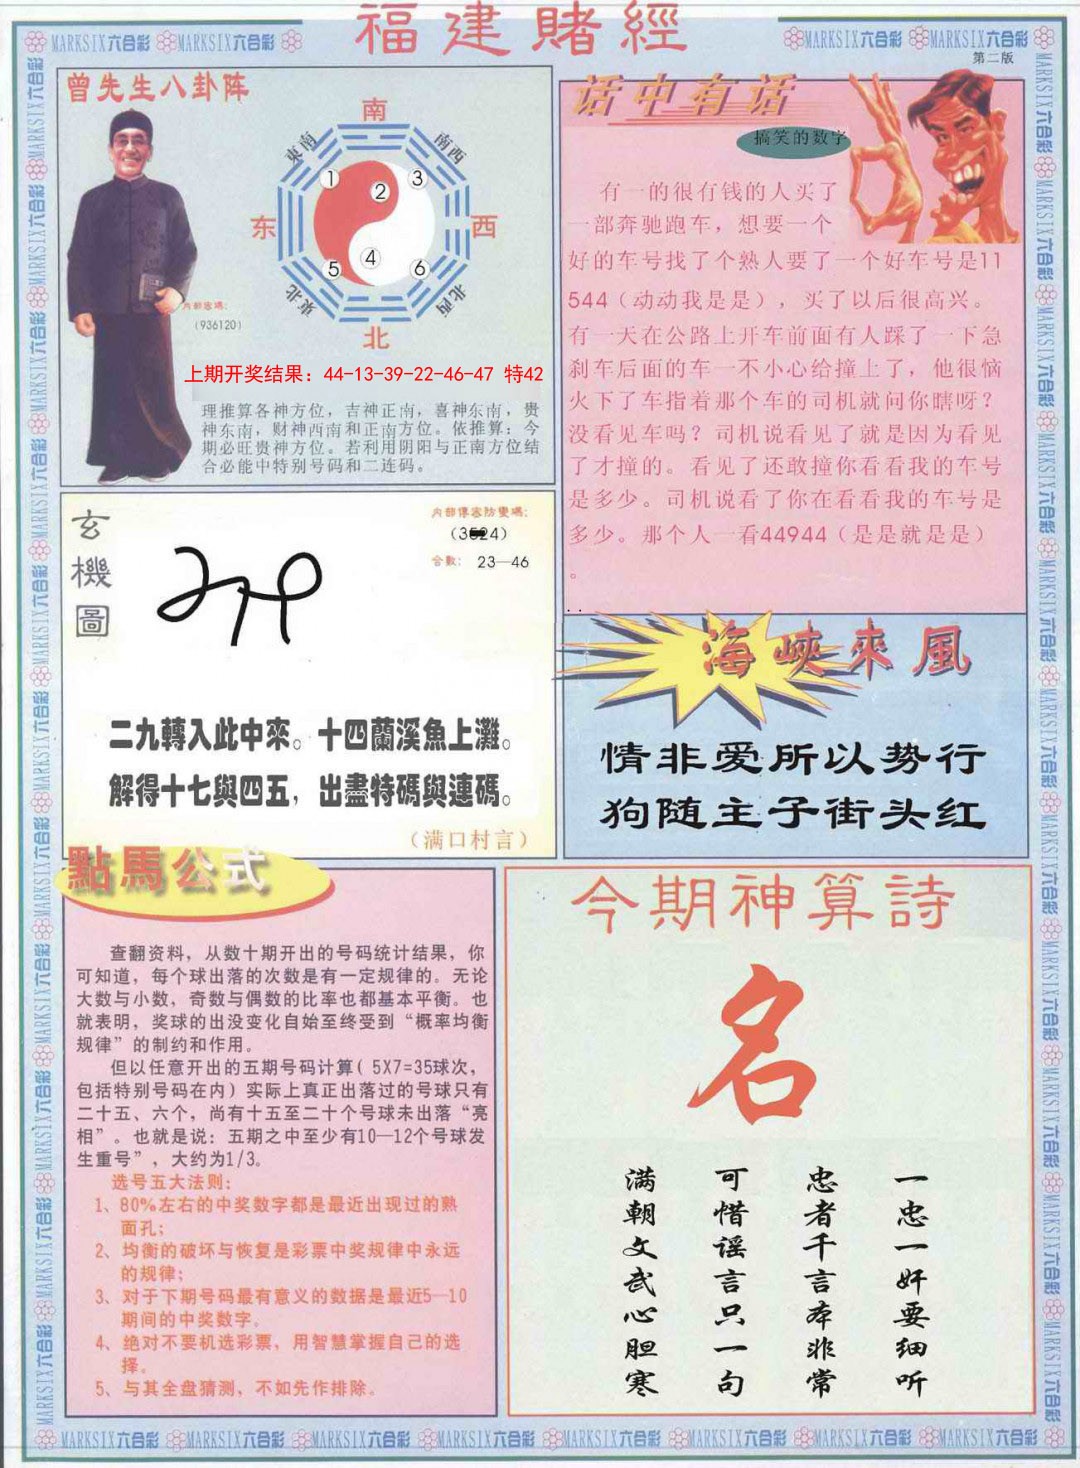 福建賭經
MARKSIX六合彩 MARKSIX六合彩
MARKSIX六合彩 MARKSIX六合彩
第二版
曾先生八卦阵
南
東南
南西
1
2
3
东
西
4
5
6
東北
北西
北
内部密碼:
(936120)
上期开奖结果：44-13-39-22-46-47 特42
理推算各神方位，吉神正南，喜神东南，贵
神东南，财神西南和正南方位。依推算：今
期必旺贵神方位。若利用阴阳与正南方位结
合必能中特别号码和二连码。
话中有话
搞笑的数字
有一的很有钱的人买了
一部奔驰跑车，想要一个
好的车号找了个熟人要了一个好车号是11
544（动动我是是），买了以后很高兴。
有一天在公路上开车前面有人踩了一下急
刹车后面的车一不小心给撞上了，他很恼
火下了车指着那个车的司机就问你瞎呀？
没看见车吗？司机说看见了就是因为看见
了才撞的。看见了还敢撞你看看我的车号
是多少。司机说看了你在看看我的车号是
多少。那个人一看44944（是是就是是）
。
玄機圖
合數: 23—46
二九轉入此中來。十四蘭溪魚上灘。
解得十七與四五，出盡特碼與連碼。
（满口村言）
海峽來風
情非爱所以势行
狗随主子街头红
點馬公式
查翻资料，从数十期开出的号码统计结果，你
可知道，每个球出落的次数是有一定规律的。无论
大数与小数，奇数与偶数的比率也都基本平衡。也
就表明，奖球的出没变化自始至终受到“概率均衡
规律”的制约和作用。
但以任意开出的五期号码计算( 5X7=35球次，
包括特别号码在内）实际上真正出落过的号球只有
二十五、六个，尚有十五至二十个号球未出落“亮
相”。也就是说：五期之中至少有10—12个号球发
生重号”，大约为1/3。
选号五大法则：
1、80%左右的中奖数字都是最近出现过的熟
面孔；
2、均衡的破坏与恢复是彩票中奖规律中永远
的规律；
3、对于下期号码最有意义的数据是最近5—10
期间的中奖数字。
4、绝对不要机选彩票，用智慧掌握自己的选
择。
5、与其全盘猜测，不如先作排除。
今期神算詩
名
一忠一奸要细听
忠者千言本非常
可惜谣言只一句
满朝文武心胆寒
MARKSIX六合彩 MARKSIX六合彩 MARKSIX六合彩 MARKSIX六合彩 MARKSIX六合彩 MARKSIX六合彩 MARKSIX六合彩 MARKSIX六合彩